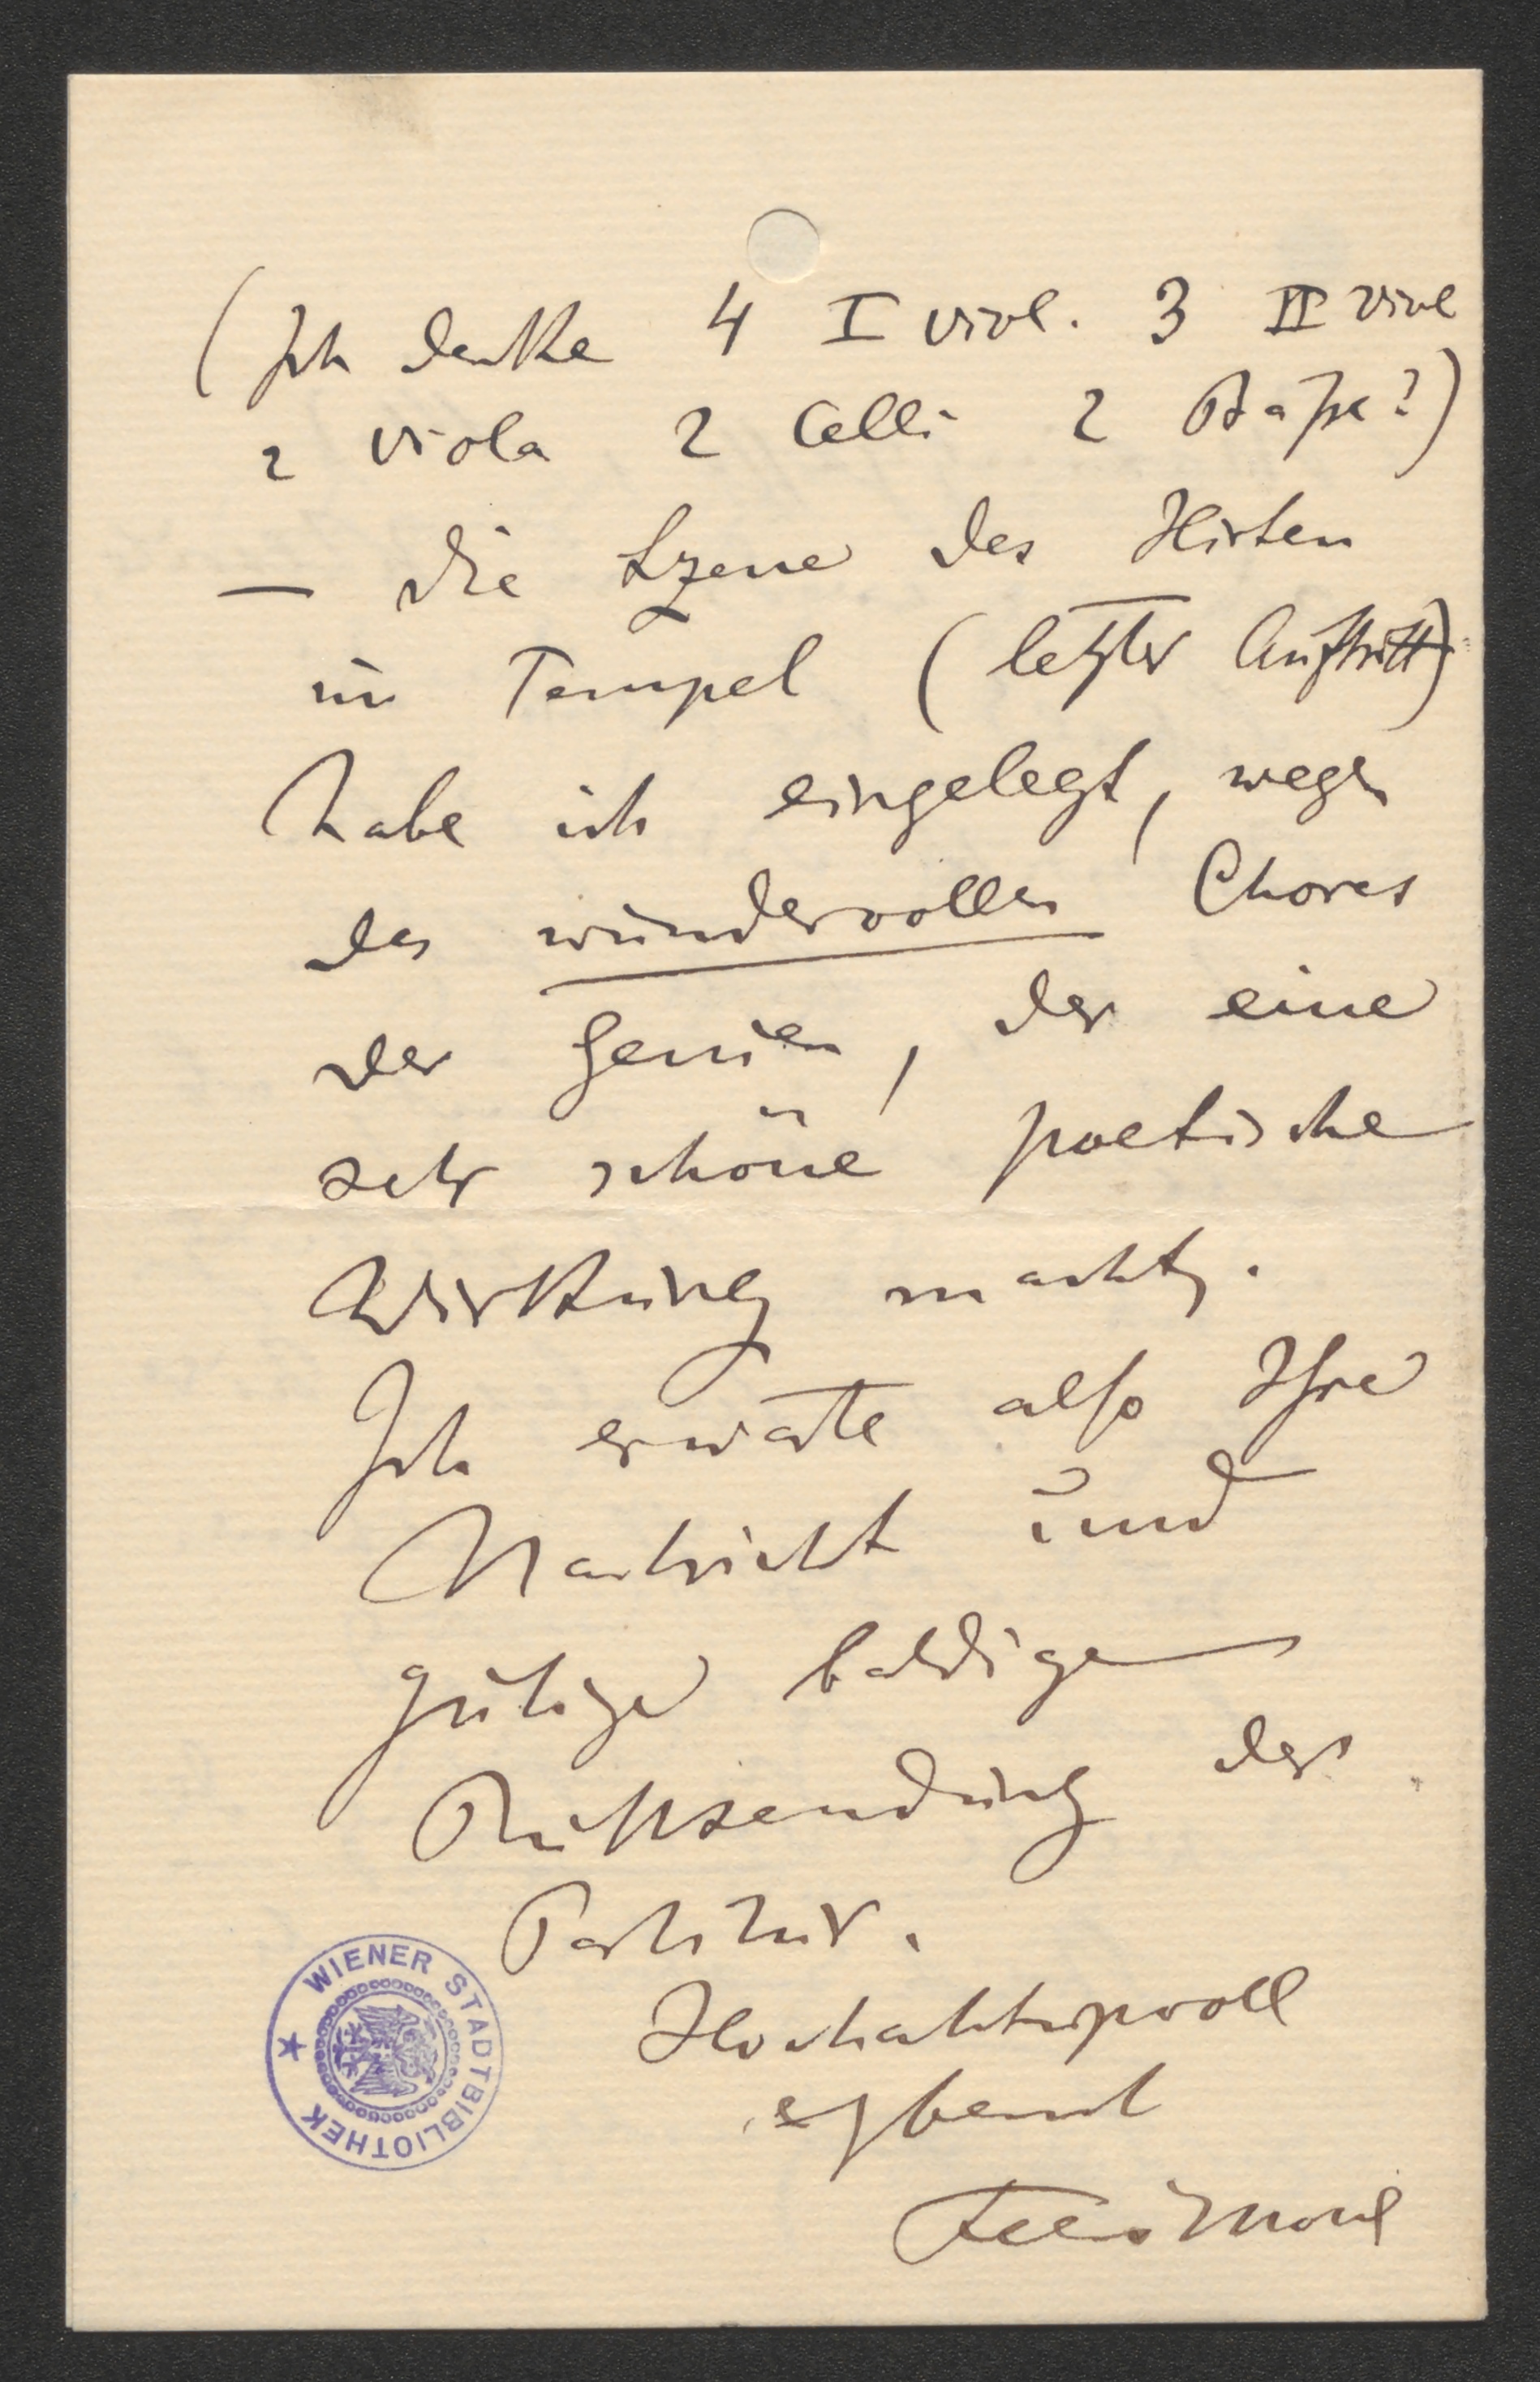 (Ich denke 4 I viol. 3 II viol
2 viola 2 Celli 2 Bäße?)
— die Szene des Hirten
im Tempel (letzter Auftritt)
habe ich eingelegt, wegen
des wundervollen Chores
der Genien, der eine
sehr schöne poetische
Wirkung macht.
Ich erwarte also Ihre
Nachricht und
gütige baldige
Rücksendung der
Partitur.
Hochachtungsvoll
ergbenst
Felix Mottl
WIENER STADTBIBLIOTHEK